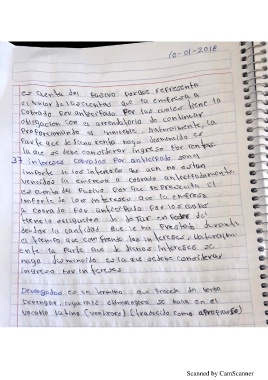 10-01-2018
es cuenta del Pasivo porque representa
el valor de las rentas que la empresa a
cobrado por anticipado Por las cuales tiene la
obligación con el arrendatario de continuar
Proporcionando el inmueble, Naturalmente, la
Parte que de dicha renta haya desmenuido es
la que se debe considerar ingreso Por rentas.
37 intereses cobrados Por anticipado son
importe de los intereses que aun no estan
vencidos la empresa a cobrado anticipadamente.
es cuenta del Pasivo Por que representa el
importe de los intereses que la empresa
a cobrado Por anticipado Por los cuales
tiene la obligación de dejar en Poder del
deudor la cantidad que le ha Prestado durante
el tiempo que comprende los intereses, Naturalme
ente la Parte que de dichos intereses se
haya disminuido es la que debe considerar
ingreso Por intereses
Devengados es un termino que Procede del verbo
Devengar, cuya raiz etimologica se halla en el
vocablo latino (vendicare) (traducido como apropiarse)
Scanned by CamScanner